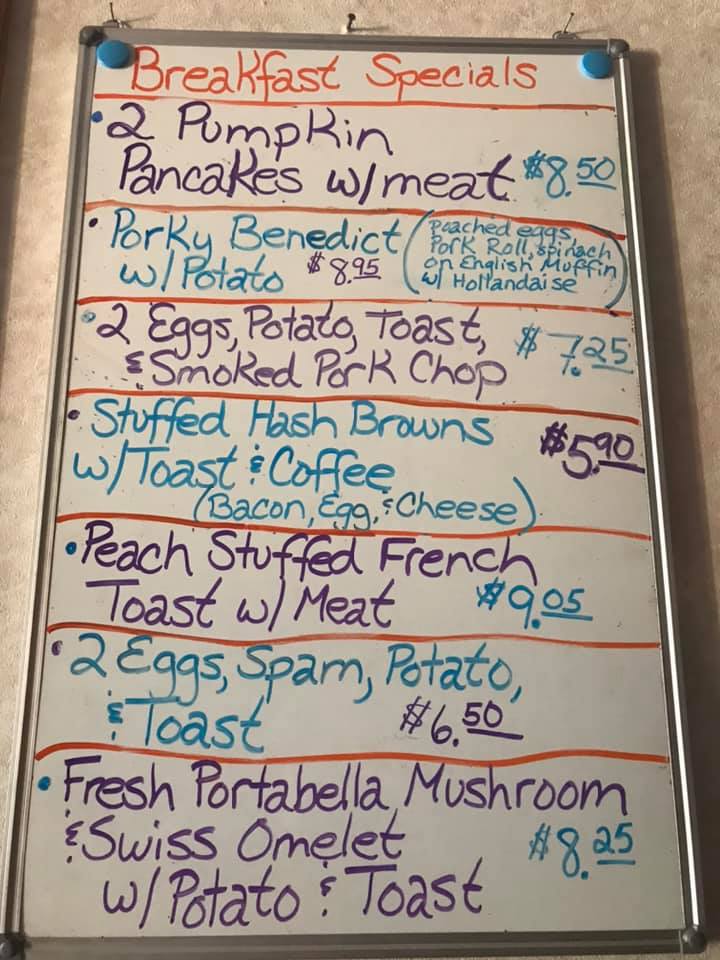 Breakfast Specials
• 2 Pumpkin
Pancakes w/ meat $8.50
• Porky Benedict (poached eggs
Pork Roll, spinach
w/ Potato $8.95 on English Muffin
w/ Hollandaise)
• 2 Eggs, Potato, Toast, $7.25
& Smoked Pork Chop
• Stuffed Hash Browns $5.90
w/ Toast & Coffee
(Bacon, Egg, & Cheese)
• Peach Stuffed French
Toast w/ Meat $9.05
• 2 Eggs, Spam, Potato,
& Toast $6.50
• Fresh Portabella Mushroom
& Swiss Omelet $8.25
w/ Potato & Toast